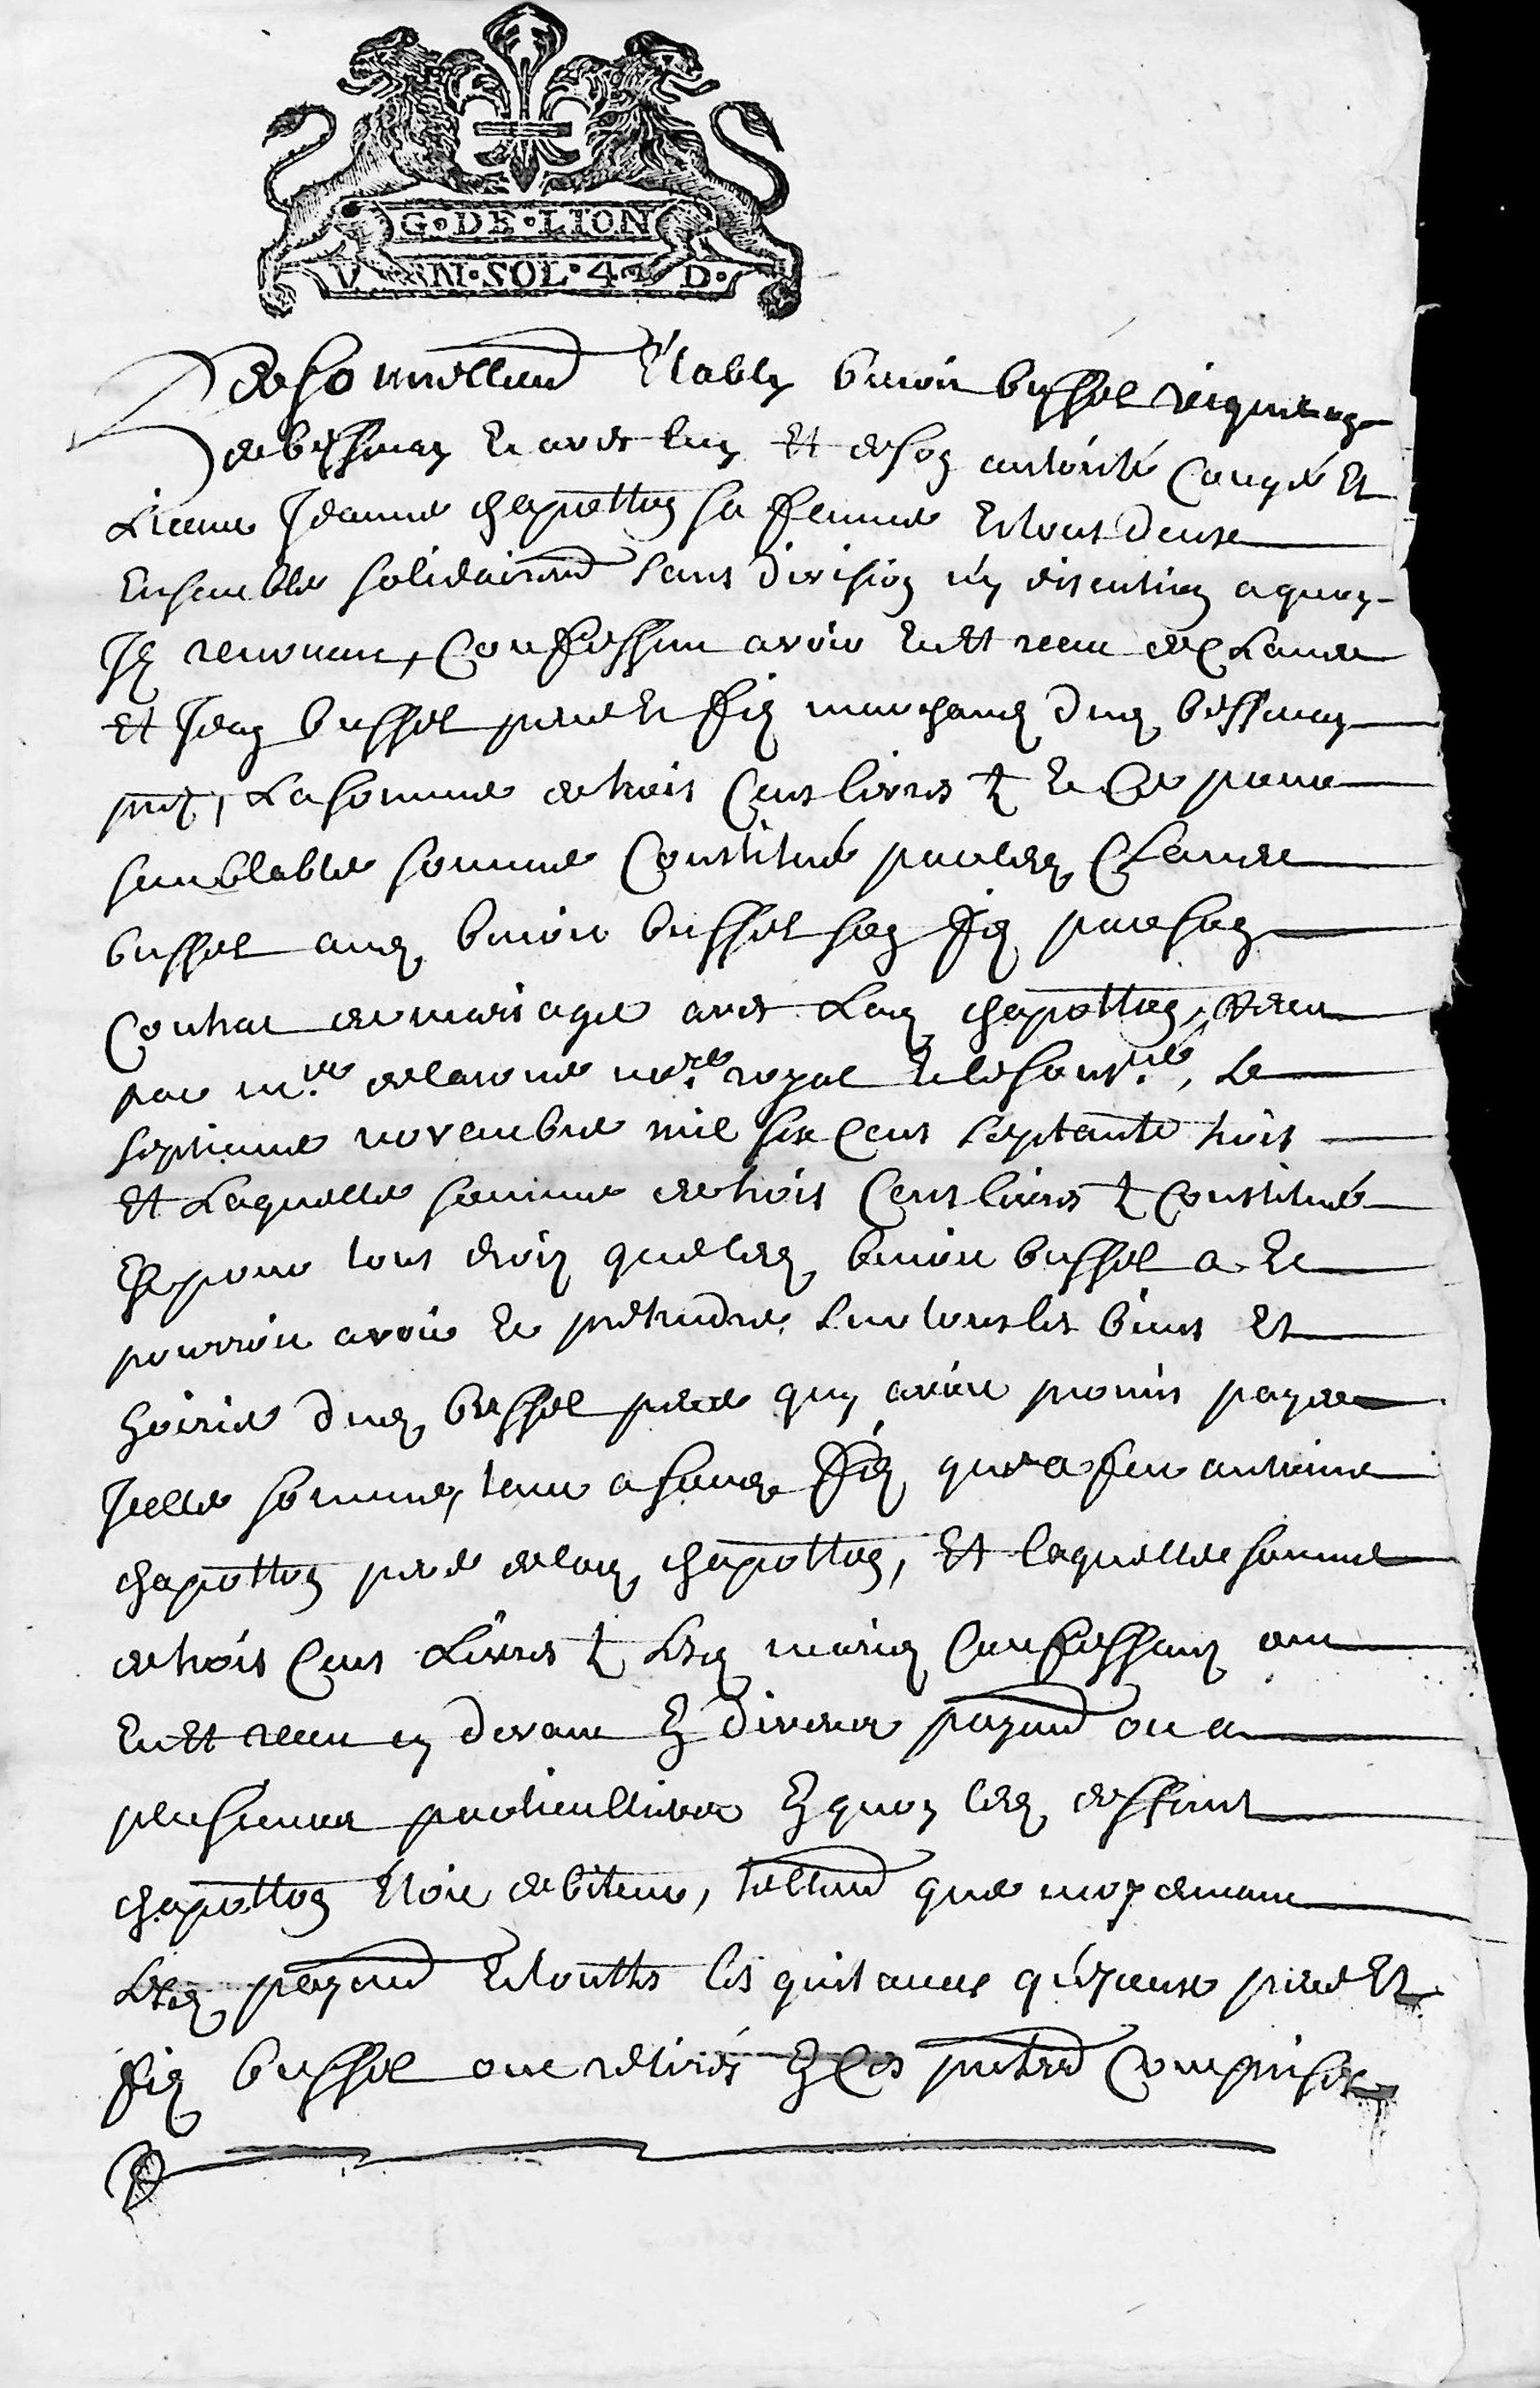 G·DE·LION
V N·SOL·4 D·
Establÿ benoit bussel
de bessenay Et avec luy Et de son authorité Congé Et
Licence Jeanne chapotton sa femme Et tous deux
Ensemble solidairemt sans division ny discution a quoy
Ils renoncent, Confessent avoir Eu Et receu de Claude
Et Jean bussel pere Et fils marchands dud bessenay
pnts, La somme de trois Cens livres tz Et Ce pour
semblable somme Constitué par led Claude
bussel aud benoit bussel son fils par son
Contrat de mariage avec Lad chapotton, Receu
par me royal, Le
septieme novembre mil six Cens septante trois
Et Laquelle somme de trois Cens livres tz Constitué
Est pour tous droits que led benoit bussel a Et
pourroit avoir Et pretendre sur tous les biens Et
hoirie dud bussel pere quy avoit promis payer
Icelle somme, tant a sond fils que a feu antoine
chapotton pere de lad chapotton, Et laquelle somme
de trois Cens Livres tz Lesd mariés Confessent avoir
Eu Et receu cy devant En divers payemt ou a
plusieurs particulliers En quoy led deffunt
chapotton Etoit debiteur, tellemt que moyenant
Lesd payemt Et touttes les quitances qu'Iceux pere Et
fils bussel ont retirés En Ces presentes Comprises